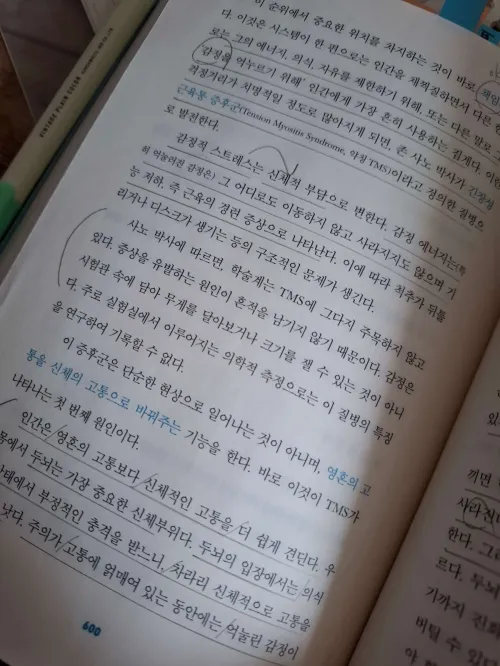 이 순위에서 중요한 위치를 차지하는 것이 바로 책임
다. 이것은 시스템이 한 편으로는 인간을 채찍질하면서 다른
로는 그의 에너지, 의식, 자유를 제한하기 위해, 또는 다른 말로
감정을 억누르기 위해 인간에게 가장 흔히 사용하는 짐게다. 이런
걱정거리가 치명적일 정도로 많아지게 되면, 존 사노 박사가 긴장성
근육통 증후군(Tension Myositis Syndrome, 약칭 TMS)이라고 정의한 질병으
로 발전한다.
감정적 스트레스는 신체적 부담으로 변한다. 감정 에너지는(특
히 억눌려진 감정은) 그 어디로도 이동하지 않고 사라지지도 않으며 기
능 저하, 즉 근육의 경련 증상으로 나타난다. 이에 따라 척추가 뒤틀
리거나 디스크가 생기는 등의 구조적인 문제가 생긴다.
사노 박사에 따르면, 학술계는 TMS에 그다지 주목하지 않고
있다. 증상을 유발하는 원인이 흔적을 남기지 않기 때문이다. 감정은
시험관 속에 담아 무게를 달아보거나 크기를 잴 수 있는 것이 아니
다. 주로 실험실에서 이루어지는 의학적 측정으로는 이 질병의 특징
을 연구하여 기록할 수 없다.
이 증후군은 단순한 현상으로 일어나는 것이 아니며, 영혼의 고
통을 신체의 고통으로 바꿔주는 기능을 한다. 바로 이것이 TMS가
나타나는 첫 번째 원인이다.
인간은 영혼의 고통보다 신체적인 고통을 더 쉽게 견딘다. 우
몸에서 두뇌는 가장 중요한 신체부위다. 두뇌의 입장에서는 의식
상태에서 부정적인 충격을 받느니, 차라리 신체적으로 고통을
낫다. 주의가 고통에 얽매여 있는 동안에는 억눌린 감정이
600
있
끼면
사라진
한다. 그
르다. 두뇌
기까지 진화
버틸 수 있